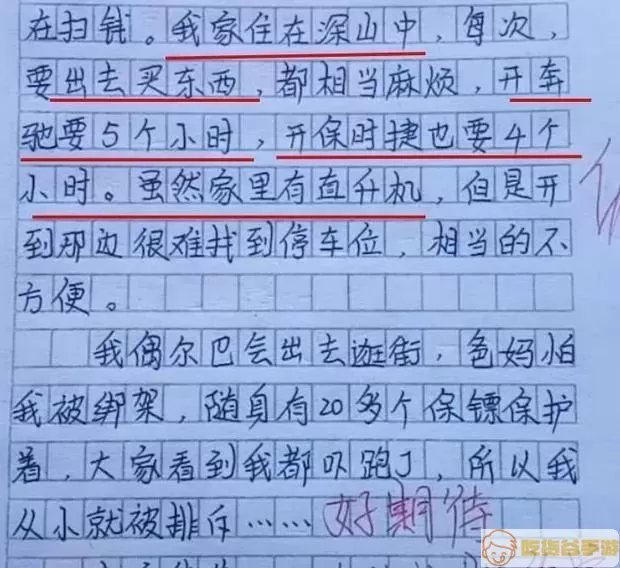 在扫钱。我家住在深山中，每次，
要出去买东西，都相当麻烦，开奔
驰要5个小时，开保时捷也要4个
小时。虽然家里有直升机，但是开
到那边很难找到停车位，相当的不
方便。
我偶尔巴会出去逛街，爸妈怕
我被绑架，随身有20多个保镖保护
着，大家看到我都吓跑了，所以我
从小就被排斥……好期待
吃货谷手游